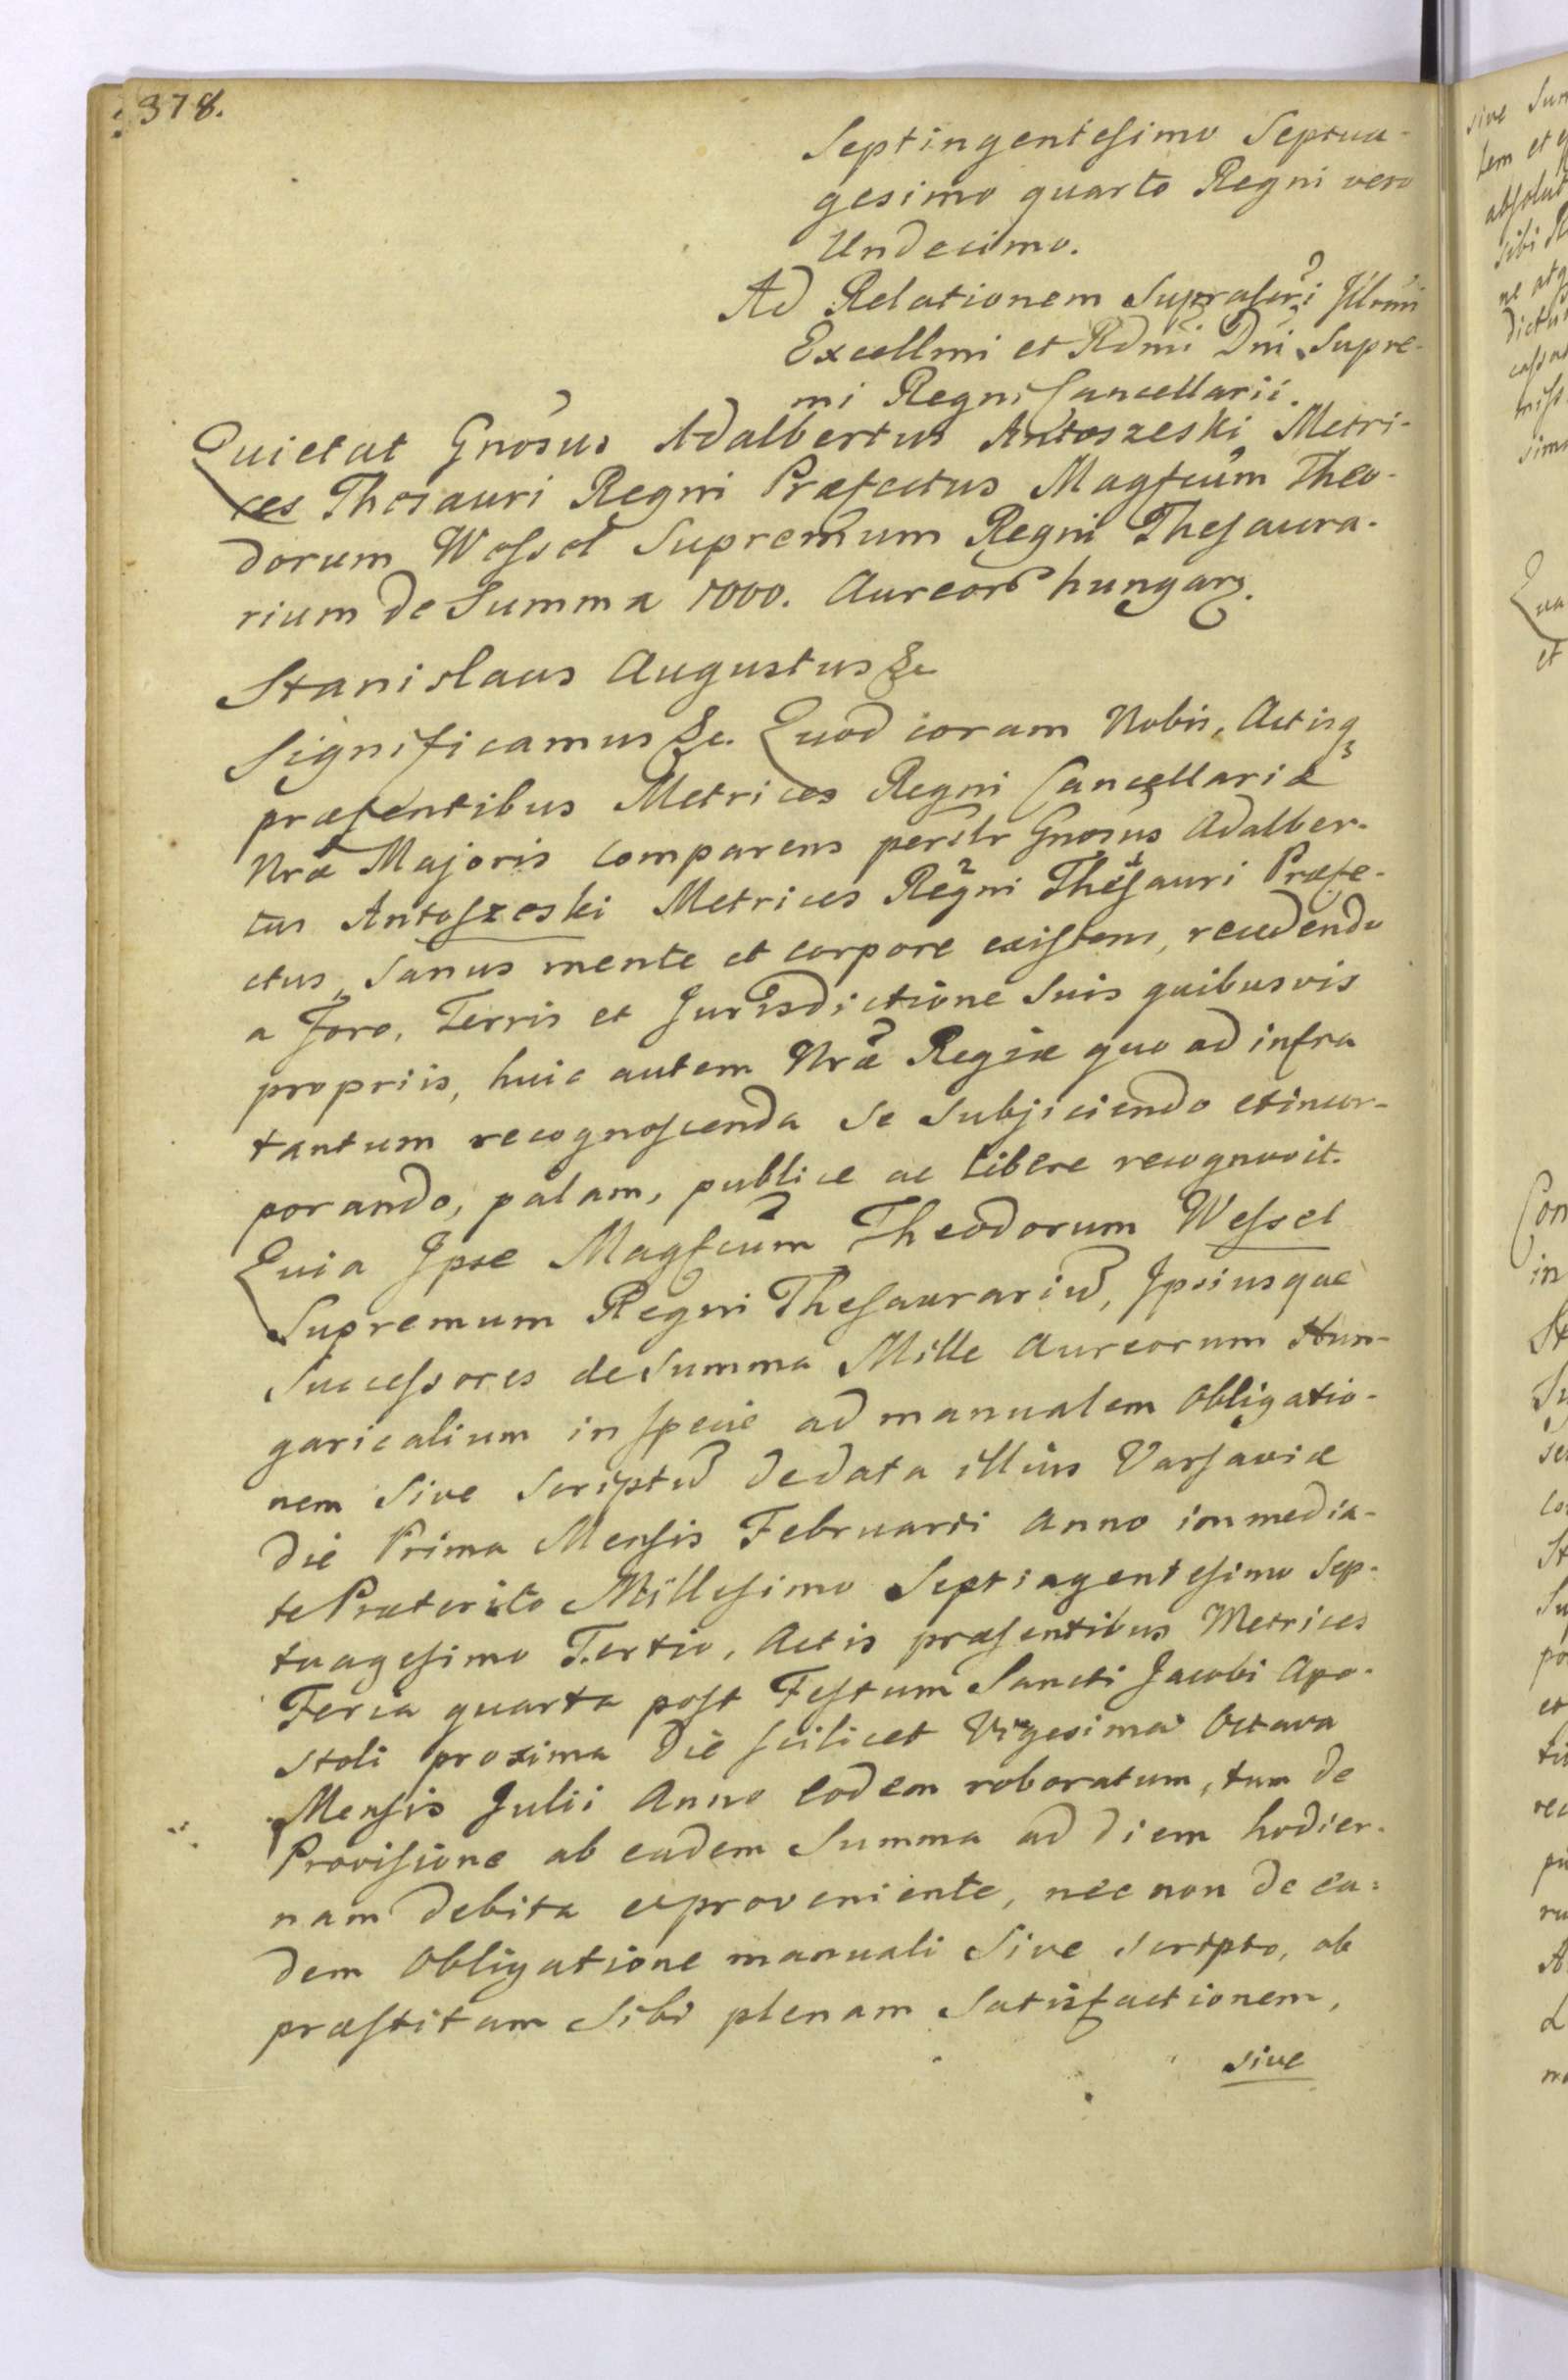 378.
Septingentesimo Septua-
gesimo quarto Regni vero
Undecimo.
Ad Relationem Suprascri Illrmi
Excellmi et Rdmi Dni Supre-
mi Regni Cancellarii.
Quietat Gnosus Adalbertus Antoszeski Metri-
ces Thesauri Regni Præfectus Magfcum Theo-
dorum Wessel Supremum Regni Thesaura-
rium de Summa 1000. Aureor hungar.
Stanislaus Augustus &c
Significamus &c. Quod coram Nobis, Actisq
præsentibus Metrices Regni Cancellariæ
Nræ Majoris Comparens perslr Gnosus Adalber-
tus Antoszeski Metrices Regni Thesauri Præfe-
ctus, Sanus mente et corpore existens, recedendo
a Foro, Terris et Jurisdictione Suis quibusvis
propriis, huic autem Nræ Regiæ quo ad infra
tantum recognoscenda Se Subjiciendo et incor-
porando, palam, publice ac libere recognovit.
Quia Ipse Magfcum Theodorum Wessel
Supremum Regni Thesaurariu, Ipsiusque
Successores de Summa Mille Aureorum Hun-
garicalium in specie ad manualem Obligatio-
nem Sive Scriptu de data illius Varsaviæ
die Prima Mensis Februarii Anno immedia-
te Præterito Millesimo Septingentesimo Sep-
tuagesimo Tertio, Actis præsentibus Metrices
Feria quarta post Festum Sancti Jacobi Apo-
stoli proxima die scilicet Vigesima Octava
Mensis Julii Anno eodem roboratum, tum de
Provisione ab eadem Summa ad diem hodier-
nam debita exproveniente, nec non de ea-
dem Obligatione manuali Sive Scripto, ob
præstitam Sibi plenam Satisfactionem,
sive